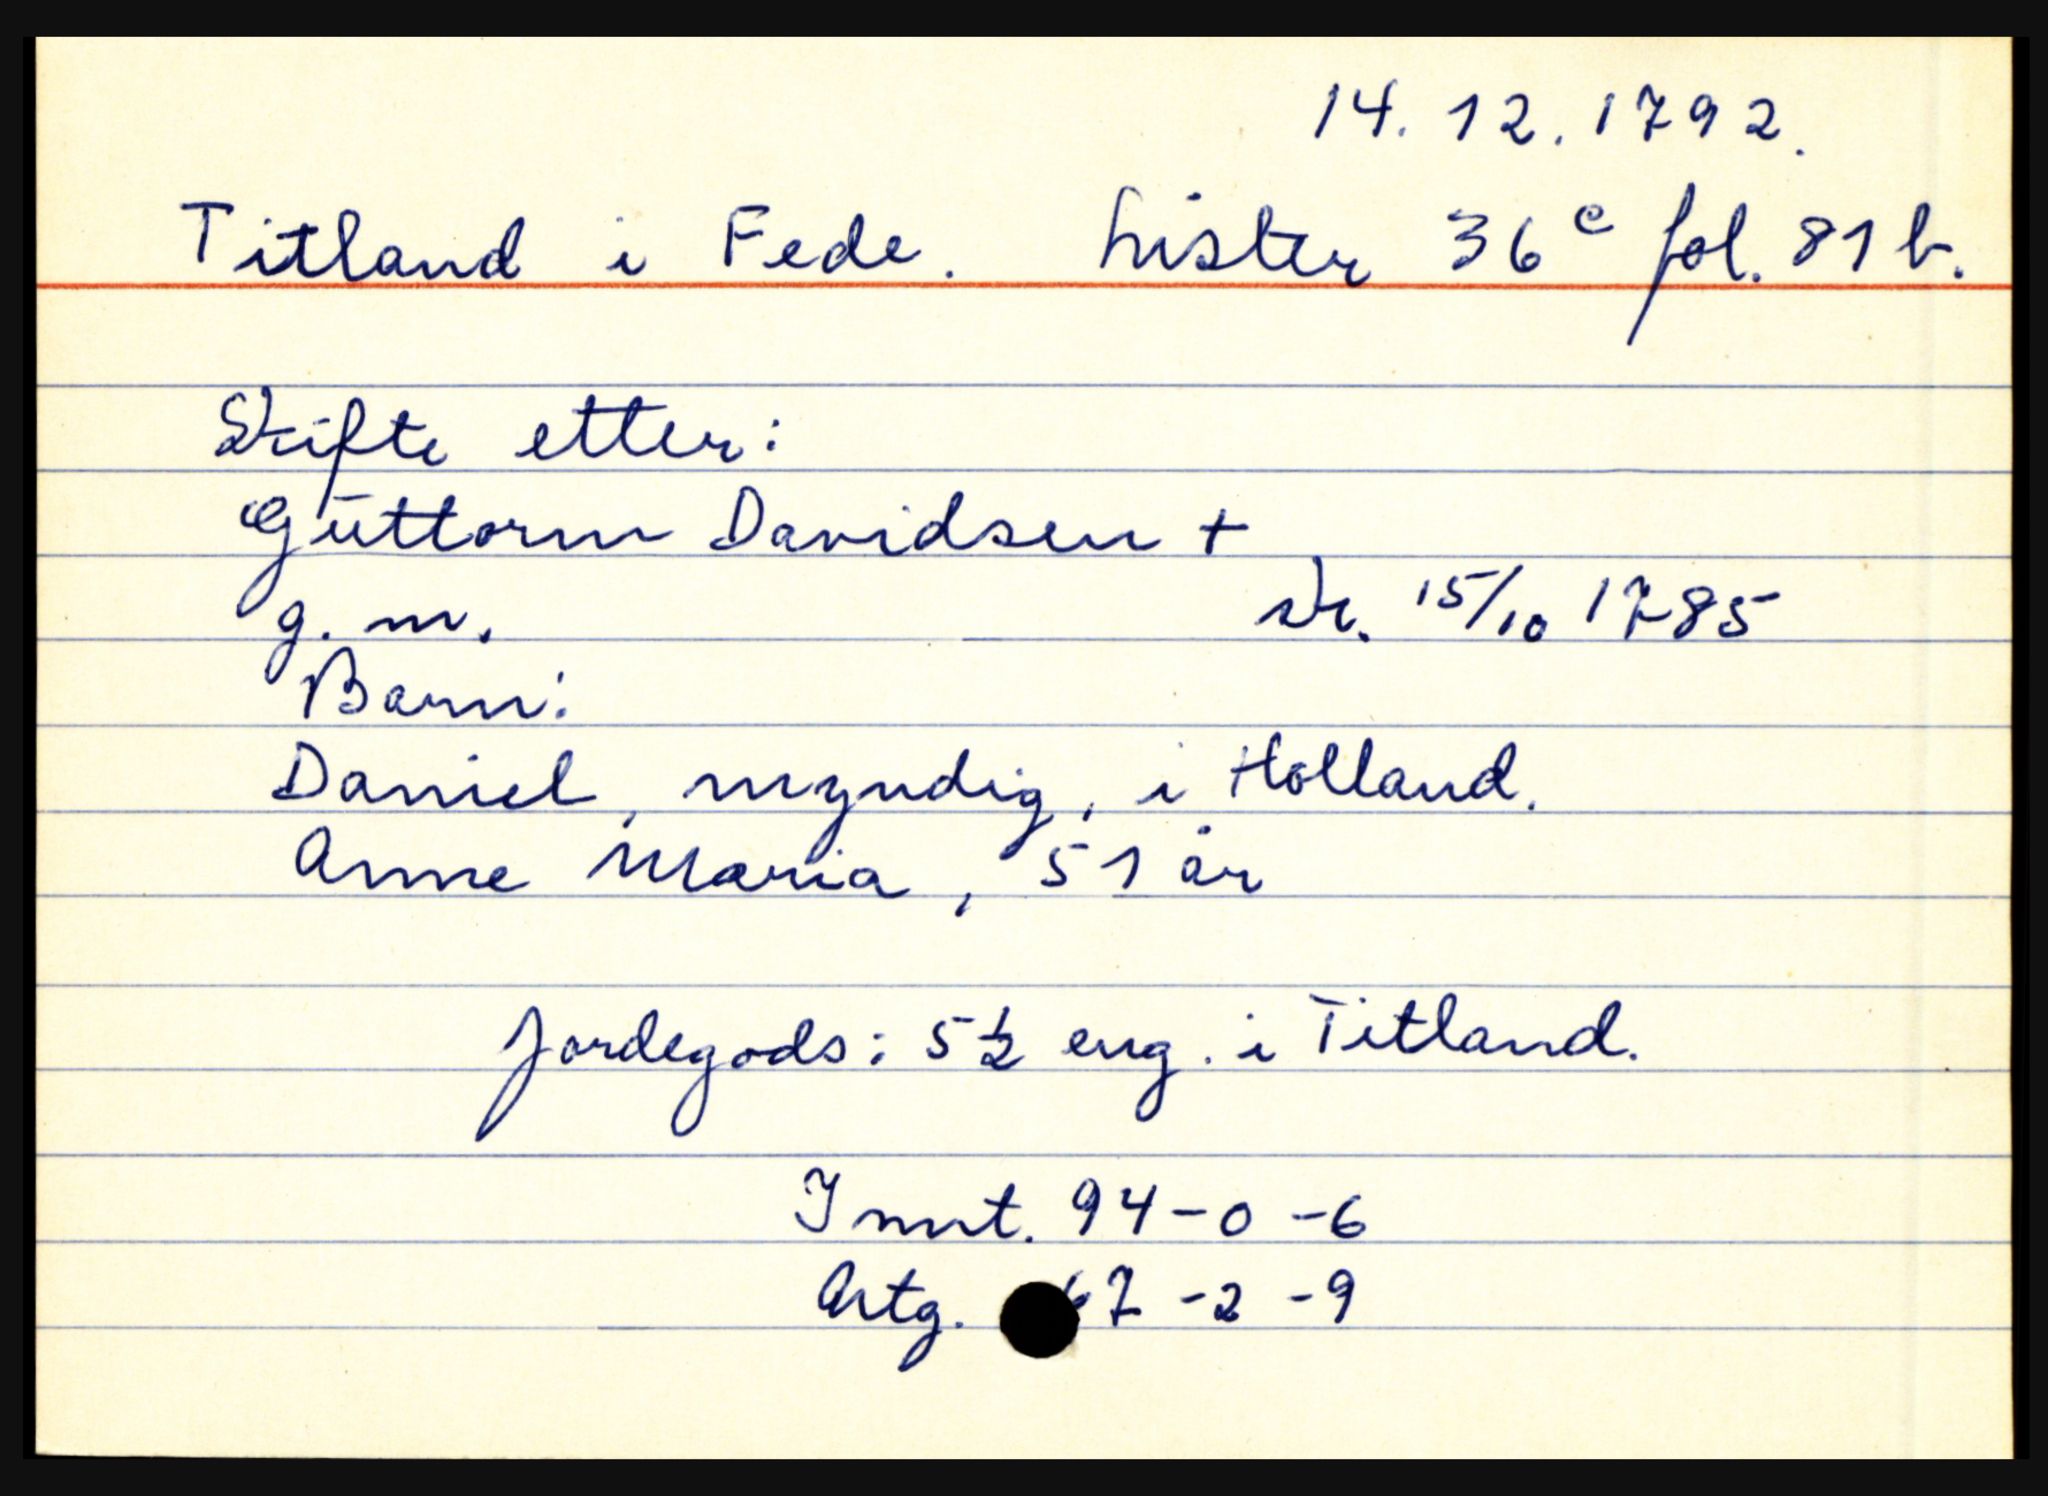 14.12.1792.
Titland i Fede. Lister 36 c fol. 81 b.
Skifte etter:
Guttorm Davidsen +
g. m. sk. 15/10 1785
Barn:
Daniel, myndig, i Holland.
Anne Maria, 51 år
Jordegods: 5 ½ eng. i Titland.
Innt. 94-0-6
Artg. 67-2-9